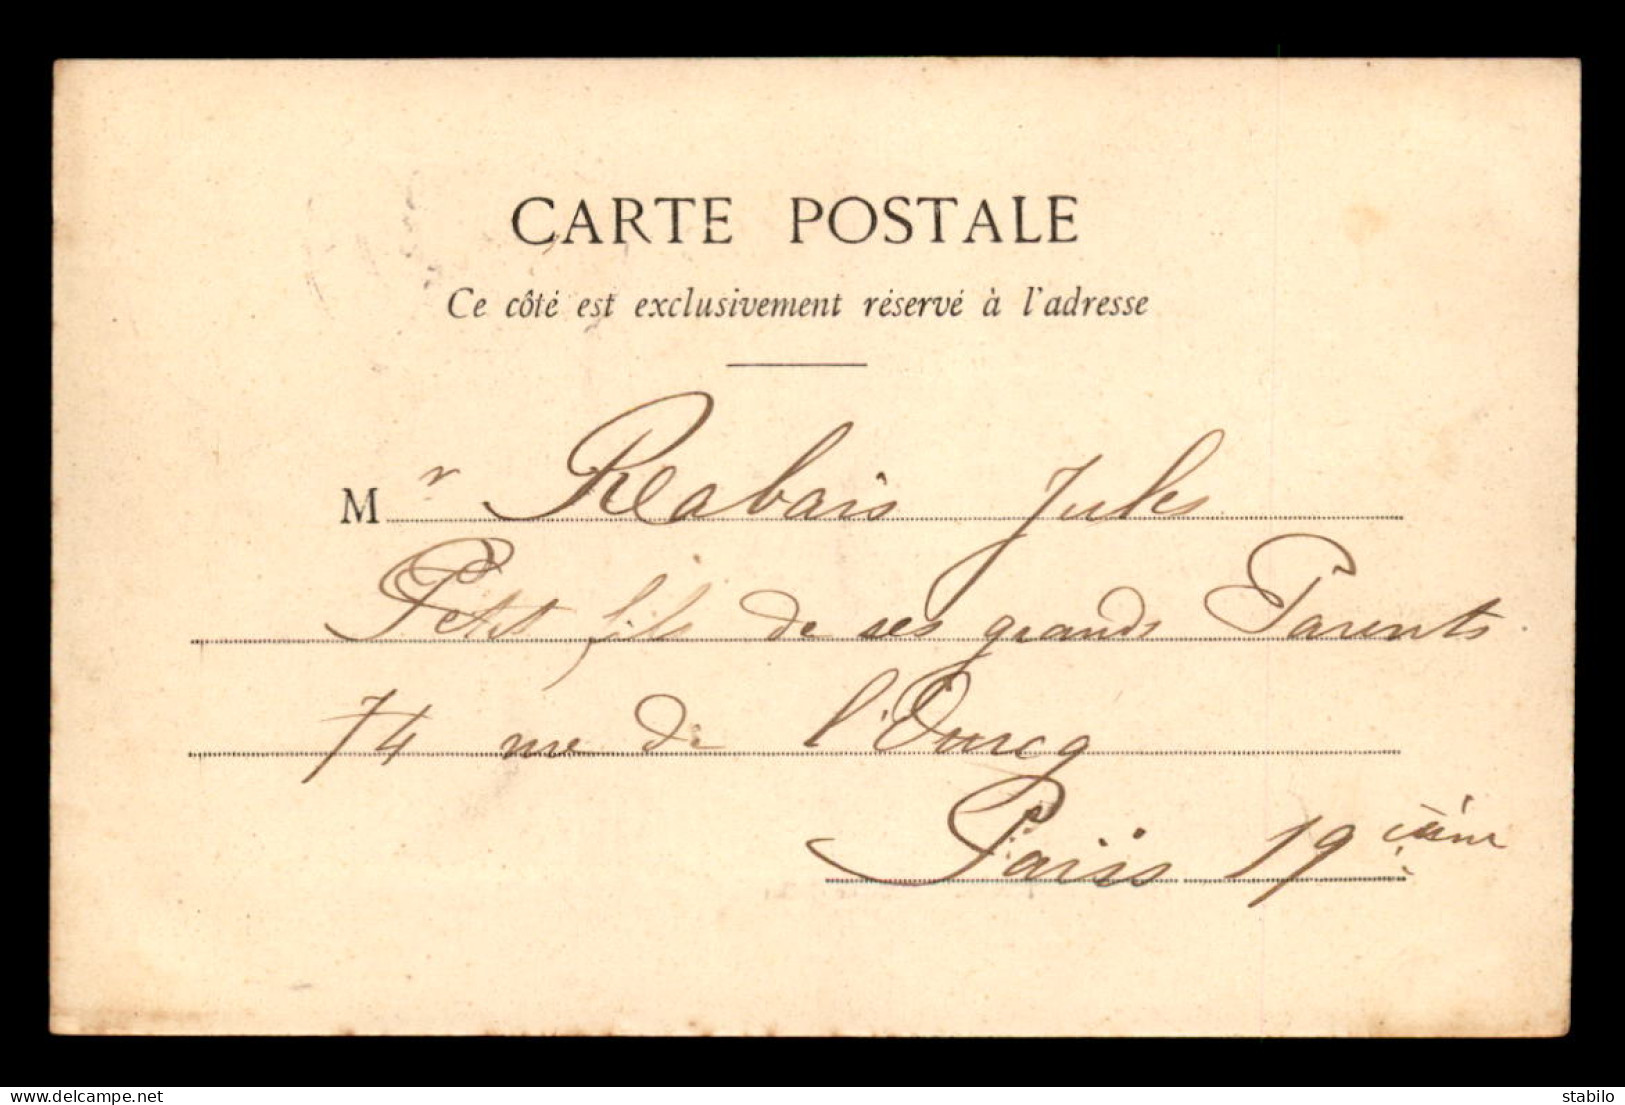 CARTE POSTALE
Ce côté est exclusivement réservé à l'adresse
Mr Rabais Jules
Petit fils de ses grands Parents.
74 rue de l'Ourcq
Paris 19ième
delcampe.net
stabilo